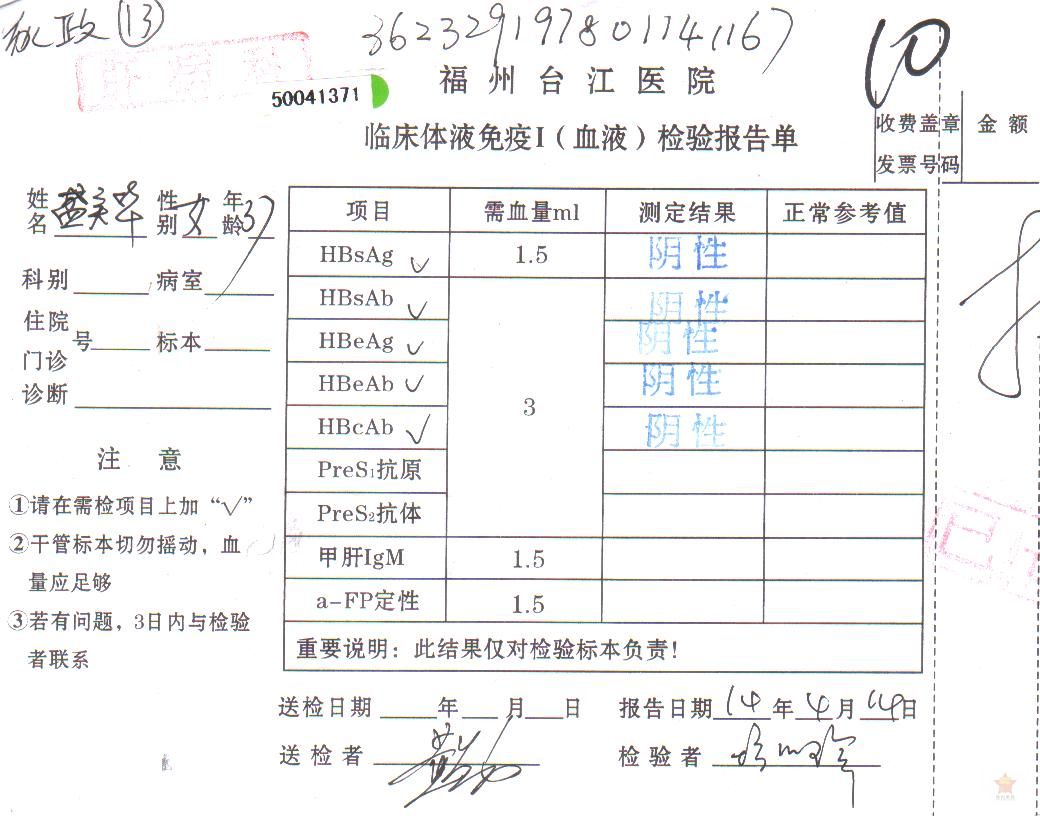 13
362329197801141167
50041371
福州台江医院
10
临床体液免疫I（血液）检验报告单
收费盖章 金额
发票号码
姓名 性别 女 年龄 37
科别 病室
住院
门诊 号 标本
诊断
项目 需血量ml 测定结果 正常参考值
HBsAg ✓ 1.5 阴性
HBsAb ✓ 阴性
HBeAg ✓ 阴性
HBeAb ✓ 3 阴性
HBcAb ✓ 阴性
PreS₁抗原
PreS₂抗体
甲肝IgM 1.5
a-FP定性 1.5
重要说明：此结果仅对检验标本负责！
注意
①请在需检项目上加“√”
②干管标本切勿摇动，血
量应足够
③若有问题，3日内与检验
者联系
送检日期 年 月 日 报告日期 14 年 4 月 14 日
送检者 检验者